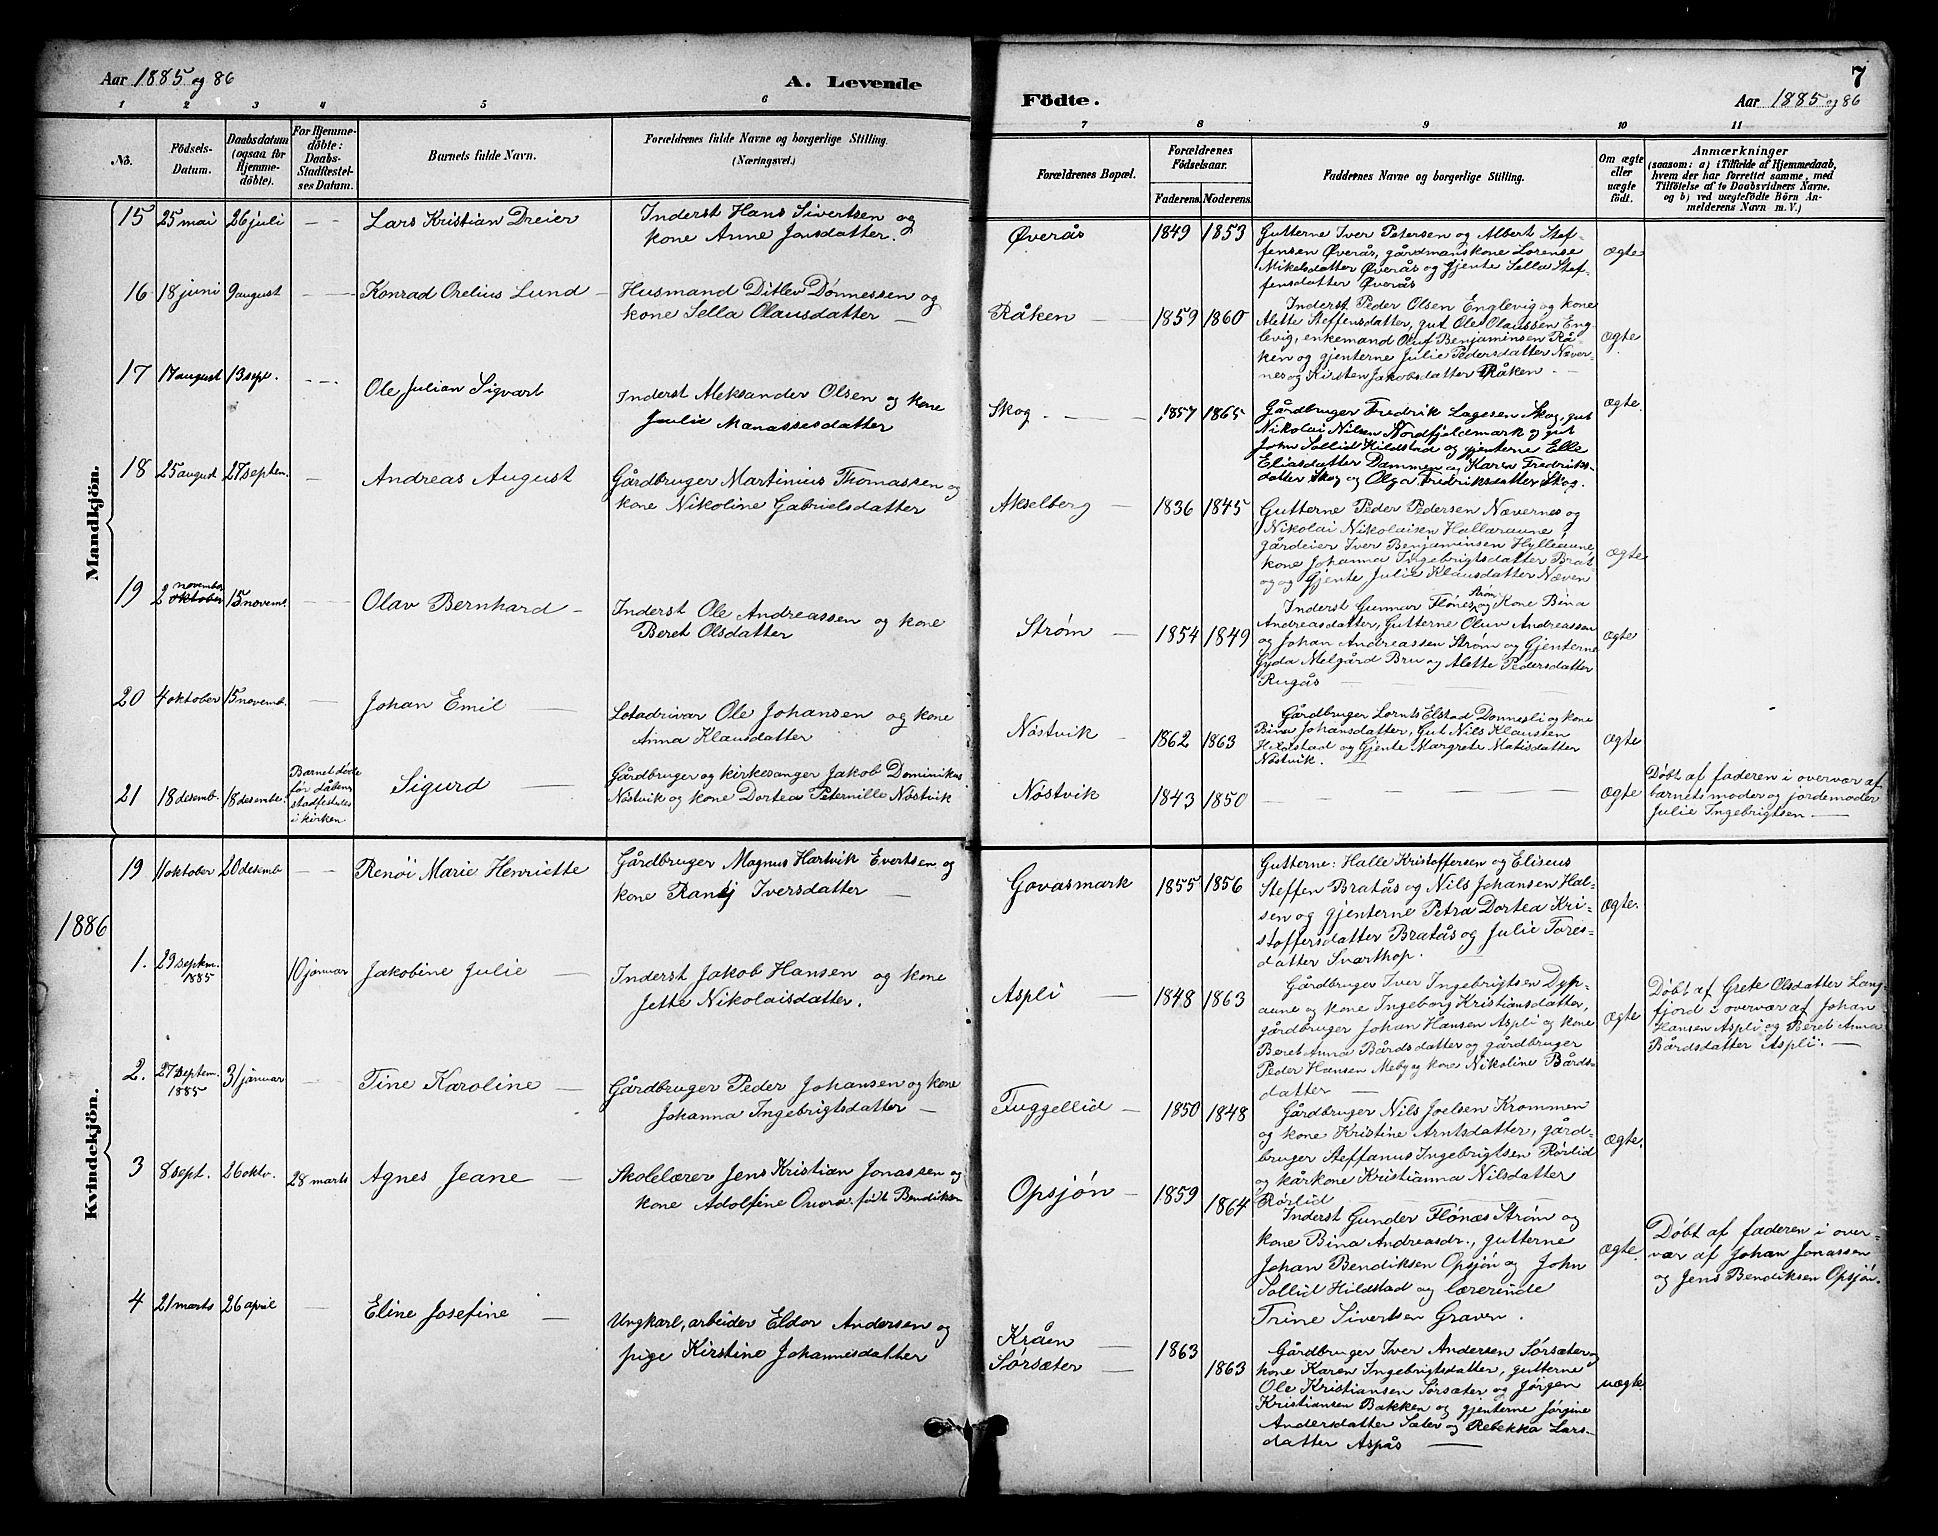 Aar 1885 og 86
A. Levende
Födte.
7
Aar 1885 og 86
1 2 3 4 5 6 7 8 9 10 11
No.
Födsels-
Datum.
Daabsdatum
(ogsaa for
Hjemme-
døbte).
For Hjemme-
døbte:
Daabs-
Stadfæstel-
ses Datum.
Barnets fulde Navn.
Forældrenes fulde Navne og borgerlige Stilling.
(Næringsvei.)
Forældrenes Bopæl.
Forældrenes
Födselsaar.
Faderens. Moderens.
Faddernes Navne og borgerlige Stilling.
Om ægte
eller
uægte
født.
Anmærkninger
(saasom: a) i Tilfælde af Hjemmedaab,
hvem der har forrettet samme, med
Tilföielse af to Daabsvidners Navne.
og b) ved uægtefödte Börn An-
melderens Navn m. V.)
Mandkjön.
15 25 mai 26 juli — — Lars Kristian Dreier
Inderst Hans Sivertsen og
kone Anne Jonsdatter.
Øverås 1849 1853
Gutterne Iver Petersen og Albert Stef-
fensen Øverås, gårdmanskone Lorense
Mikelsdatter Øverås og Gjente Sella Stef-
fensdatter Øverås
ægte
16 18 juni 9 august — — Konrad Orelius Lund —
Husmand Ditlev Dønnessen og
kone Sella Olausdatter —
Råken — 1859 1860
Inderst Peder Olsen Englevig og kone
Alette Steffensdatter, gut Ole Olaussen Eng-
levig, enkemand Oluf Benjaminsen Rå-
ken og gjenterne Julie Pedersdatter Næver-
nes og Kirsten Jakobsdatter Råken. —
ægte
17 17 august 13 sept. — — Ole Julian Sigvart
Inderst Aleksander Olsen og kone
Julie Manassesdatter
Skog. — 1857 1865
Gårdbruger Fredrik Lagesen Skog, gut
Nikolai Nilsen Nordfjeldmark og gut
John Sollid Hildstad og gjenterne Elle
Eliasdatter Dammen og Karen Fredriks-
datter Skog og Olga Fredriksdatter Skog.
ægte
18 25 august 27 septem. — Andreas August
Gårdbruger Martinius Thomassen og
kone Nikoline Gabrielsdatter
Akselberg — 1836 1845
Gutterne Peder Pedersen Nævernes og
Nikolai Nikolaisen Hallaraune,
gårdeier Iver Benjaminsen Hylleaune,
kone Johanna Ingebrigtsdatter Brat-
og og Gjente Julie Klausdatter Næven
ægte
19 2 november oktober 15 novemb. — Olav Bernhard —
Inderst Ole Andreassen og kone
Beret Olsdatter
Strøm — 1854 1849
Inderst Gunnar Flönes Strøm og Kone Bina
Andreasdatter, Gutterne Oluv Andreassen
og Johan Andreassen Strøm og Gjenterne
Gyda Melgård Bru og Alette Pedersdatter
Rugås —
ægte
20 4 oktober 15 novemb. — Johan Emil —
Lotadrivar Ole Johansen og kone
Anna Klausdatter
Nöstvik — 1862 1863
Gårdbruger Lornts Elstad Donnesli og kone
Bina Johansdatter, Gut Nils Klaussen
Hildstad og Gjente Margrete Matisdatter
Nöstvik. —
ægte
21 18 desemb. 18 desember.
Barnet døde
før dåbens
stadfestelse
i kirken
Sigurd —
Gårdbruger og kirkesanger Jakob Dominikus
Nöstvik og kone Dortea Peternille Nöstvik
Nöstvik 1843 1850 — — — ægte
Döbt af faderen i overvær af
barnets moder og jordemoder
Julie Ingebrigtsen —
Kvindekjön.
19 11 oktober 20 desemb — — Renöi Marie Henriette
Gårdbruger Magnus Hartvik Evertsen og
kone Ranej Iversdatter —
Govasmark 1855 1856
Gutterne: Halle Kristoffersen og Eliseus
Steffen Bratås og Nils Johansen Hal-
sen og gjenterne Petra Dortea Kri-
stoffersdatter Bratås og Julie Tores-
datter Svarthop.
ægte.
1886
1. 29 septem. 1885 10 januar Jakobine Julie —
Inderst Jakob Hansen og kone
Jette Nikolaisdatter.
Aspli — 1848 1863
Gårdbruger Iver Ingebrigtsen Dyp-
aune og kone Ingeborg Kristiansdatter,
gårdbruger Johan Hansen Aspli og kone
Beret Anna Bårdsdatter og gårdbruger
Peder Hansen Meby og kone Nikoline Bårds-
datter —
ægte
Döbt af Grete Olsdatter Lang-
fjord i overvær af Johan
Hansen Aspli og Beret Anna
Bårdsdatter Aspli. —
2. 27 septem. 1885 31 januar — Tine Karoline —
Gårdbruger Peder Johansen og kone
Johanna Ingebrigtsdatter —
Fuggellid — 1850 1848
Gårdbruger Nils Joelsen Krommen
og kone Kristine Arntsdatter, gård-
bruger Steffanus Ingebrigtsen Rörlid
og kårkone Kristianna Nilsdatter
Rörlid —
ægte.
3 8 sept. 26 oktv. 28 marts Agnes Jeane —
Skolelærer Jens Kristian Jonassen og
kone Adolfine Overa. født Bendiksen
Opsjön — 1859 1864
Inderst Gunder Flönæs Strøm og
kone Bina Andreasdr., gutterne
Johan Bendiksen Opsjön og John
Sollid Hildstad og lærerinde
Trine Sivertsen Graven.
ægte.
Döbt af faderen i over-
vær af Johan Jonassen
og Jens Bendiksen Opsjön.
4 21 marts 26 april — Eline Josefine —
Ungkarl, arbeider Eldor Andersen og
pige Kirstine Johannesdatter
Kråen —
Sörsæter — 1863 1863
Gårdbruger Iver Andersen Sörsæter og
kone Karen Ingebrigtsdatter, gutterne
Ole Kristiansen Sörsæter og Jörgen
Kristiansen Bakken og gjenterne Jörgine
Andersdatter Sæter og Rebekka Lars-
datter Aspås —
uægte.